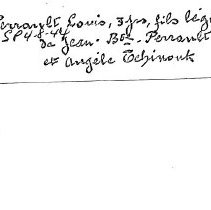 Perrault, Louis, 3 frs, fils lég
SP4-8-44
de Jean-Bte. Perrault
et Angèle Tchinouk